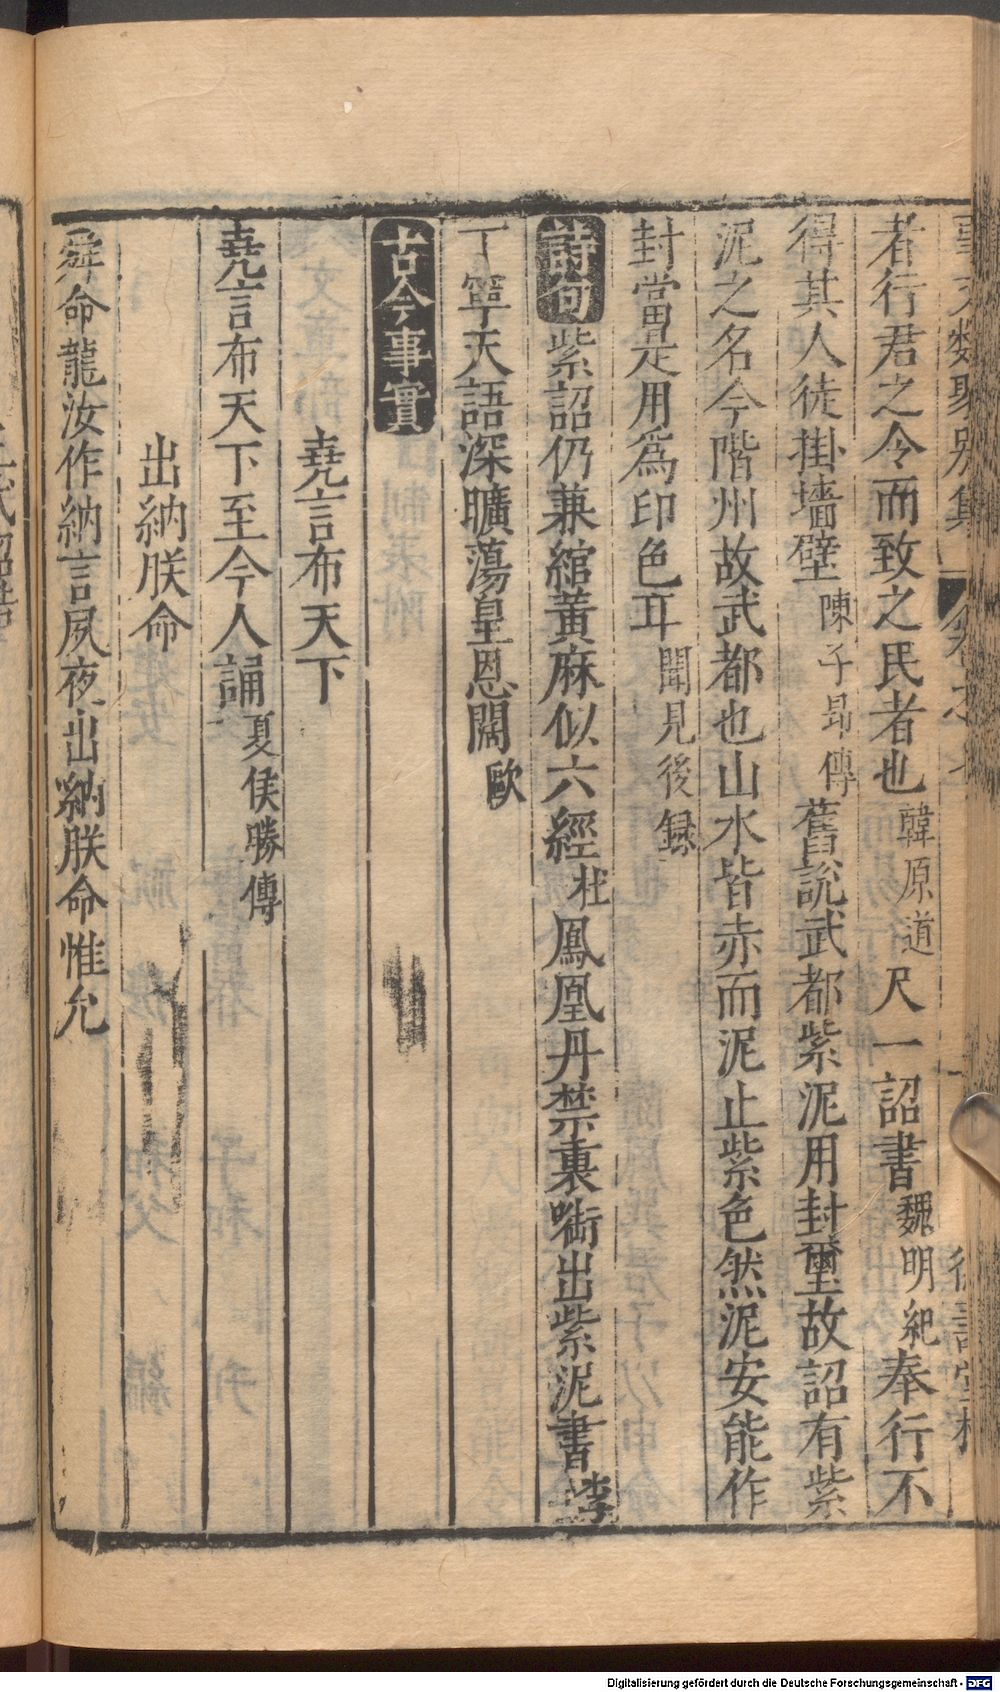 事文類聚別集 卷之七
者行君之令而致之民者也韓原道尺一詔書魏明紀奉行不
得其人徒掛墻壁陳子昻傳舊說武都紫泥用封璽故詔有紫
泥之名今階州故武都也山水皆赤而泥止紫色然泥安能作
封當是用爲印色耳聞見後録
詩句紫詔仍兼綰黃麻似六經杜鳳凰丹禁裏㗸出紫泥書李
丁寧天語深曠蕩皇恩闊歐
古今事實
堯言布天下
堯言布天下至今人誦夏侯勝傳
出納朕命
舜命龍汝作納言夙夜出納朕命惟允
Digitalisierung gefördert durch die Deutsche Forschungsgemeinschaft - DFG